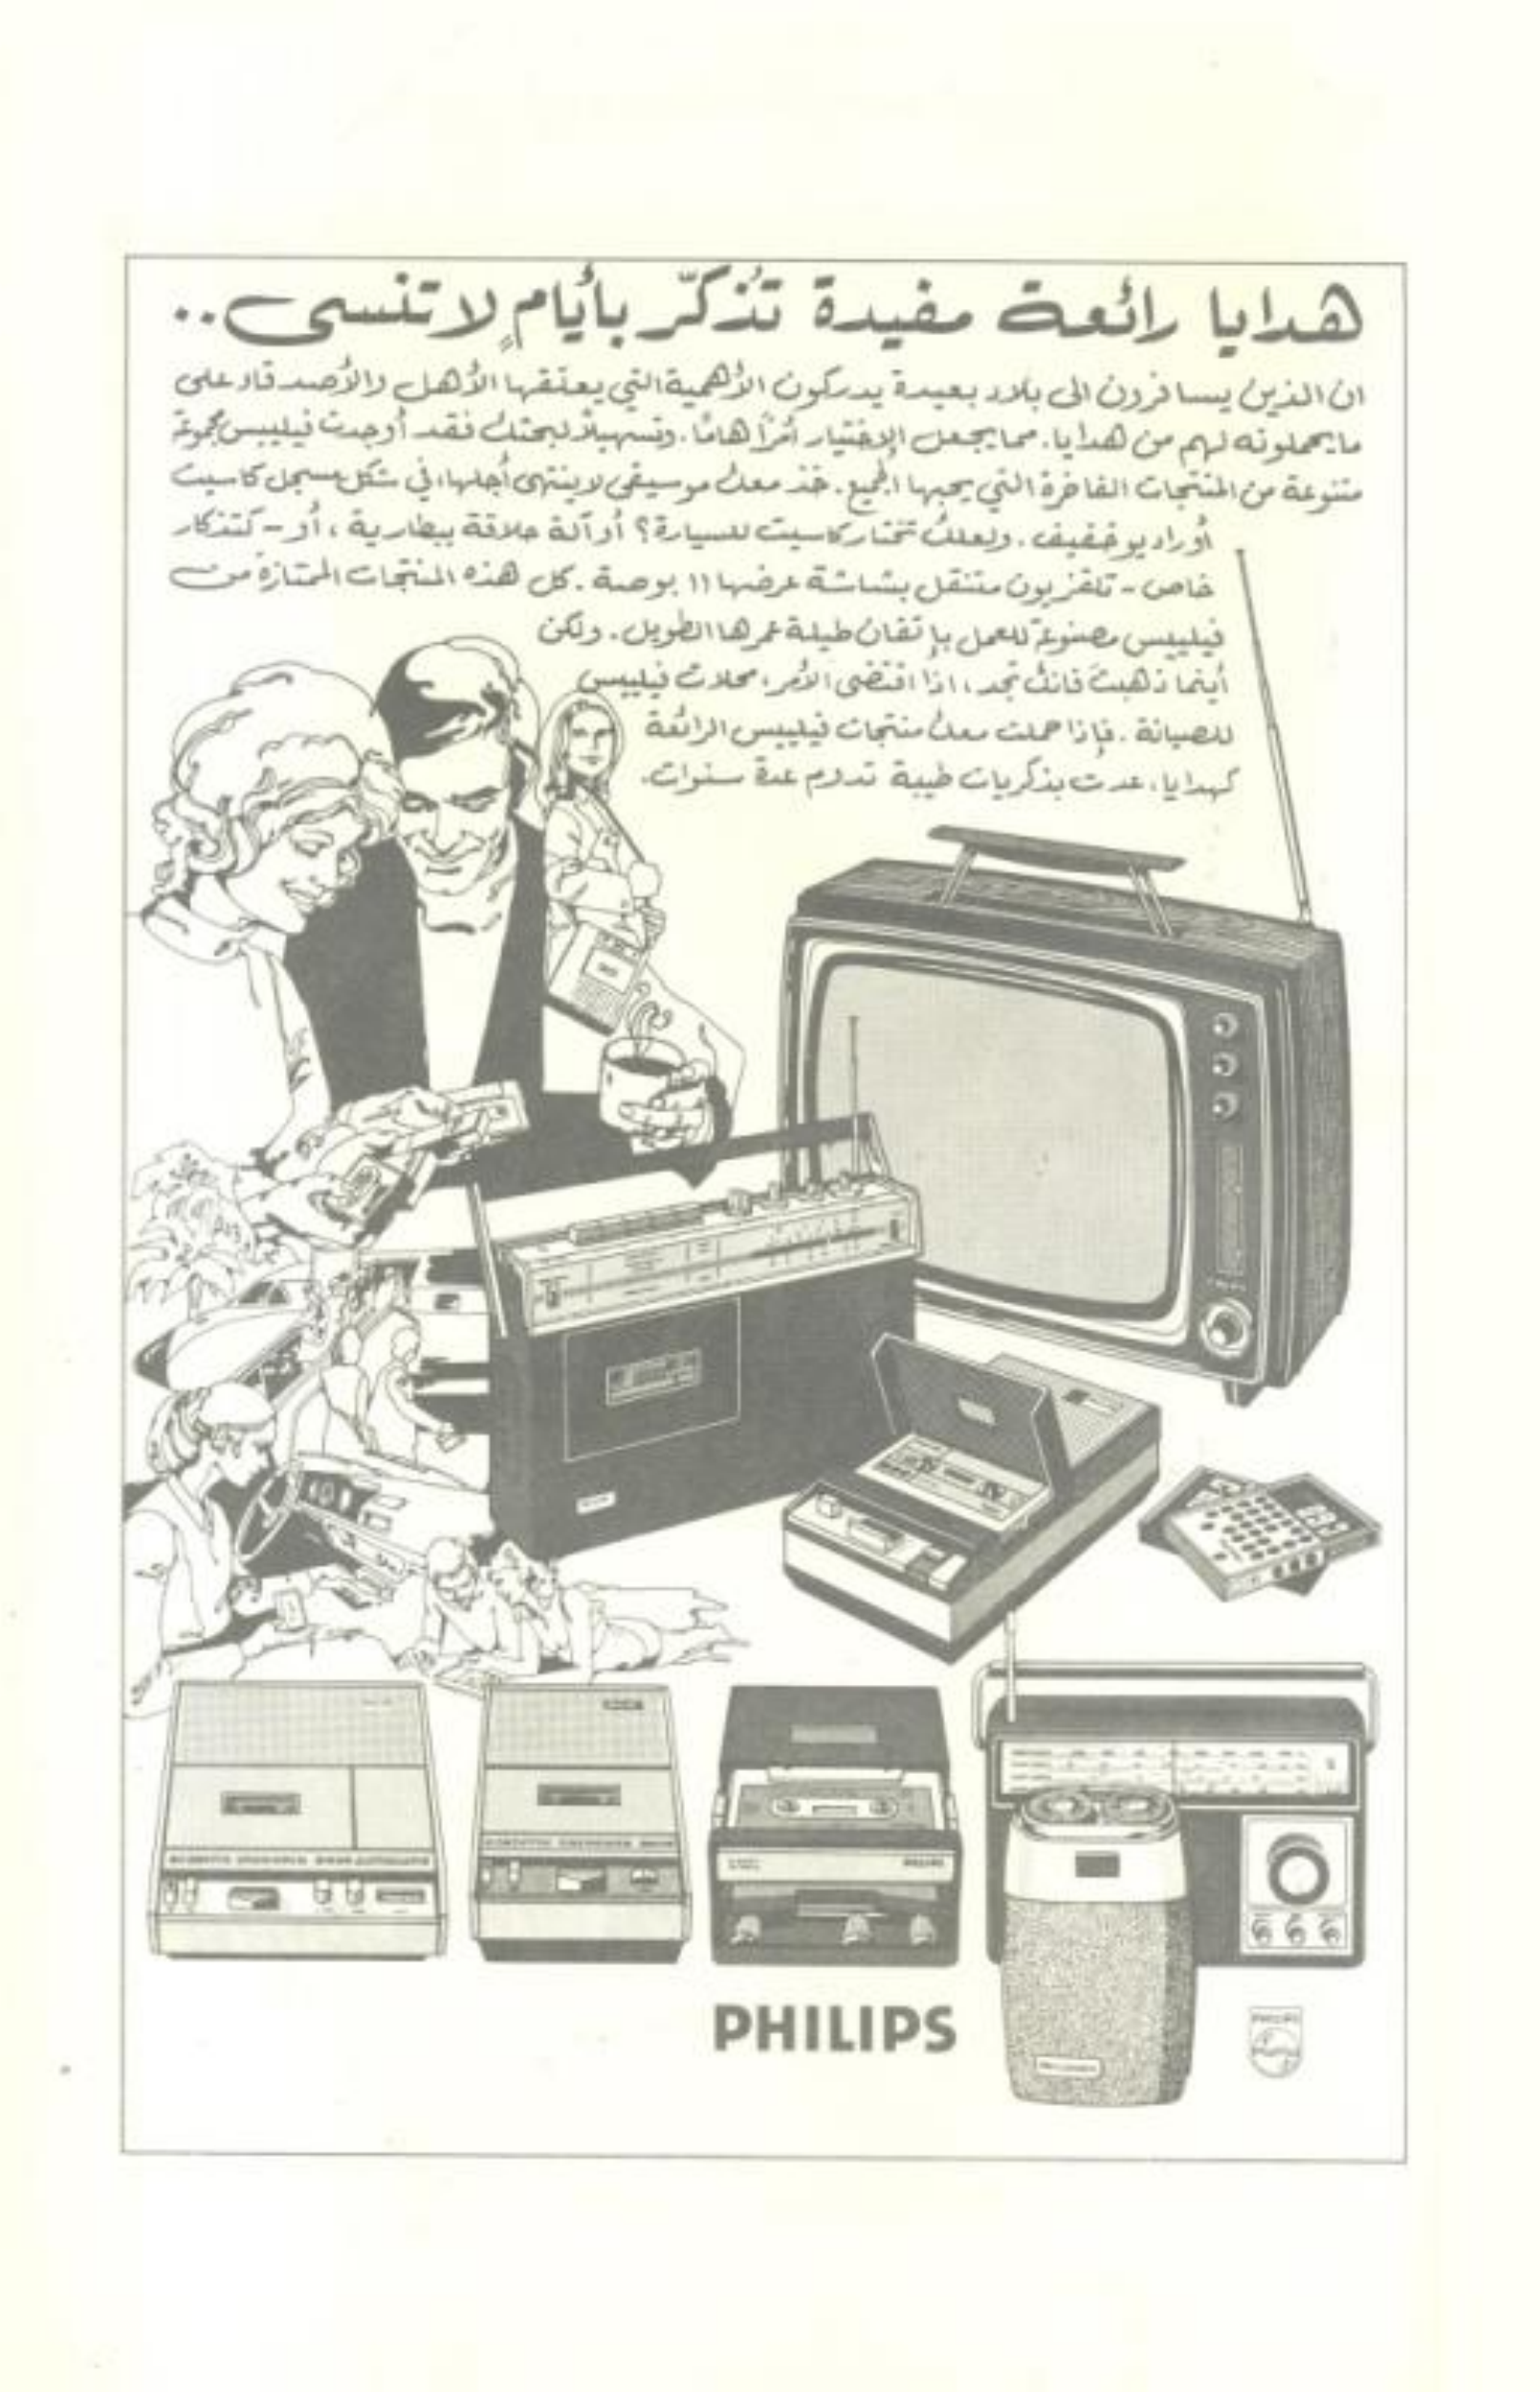 هدايا رائعة مفيدة تُذكّر بأيامٍ لا تنسى..
ان الذين يسافرون الى بلاد بعيدة يدركون الأهمية التي يعلقها الأهل والأصدقاء على
ما يحملونه لهم من هدايا. مما يجعل الإختيار أمراً هامًا. وتسهيلاً لبحثك فقد أوجدت فيليبس مجموعة
متنوعة من المنتجات الفاخرة التي يحبها الجميع. خذ معك موسيقى لا ينتهي أجلها، في شكل مسجل كاسيت
أو راديو خفيف. ولعلك تختار كاسيت للسيارة؟ أو آلة حلاقة ببطارية، أو - كتذكار
خاص - تلفزيون متنقل بشاشة عرضها ١١ بوصة. كل هذه المنتجات الممتازة من
فيليبس مصنوعة للعمل بإتقان طيلة عمرها الطويل. ولكن
أينما ذهبتَ فانك تجد، اذا اقتضى الأمر، محلات فيليبس
للصيانة. فإذا حملت معك منتجات فيليبس الرائعة
كهدايا، عدت بذكريات طيبة تدوم عدة سنوات.
PHILIPS
PHILIPS